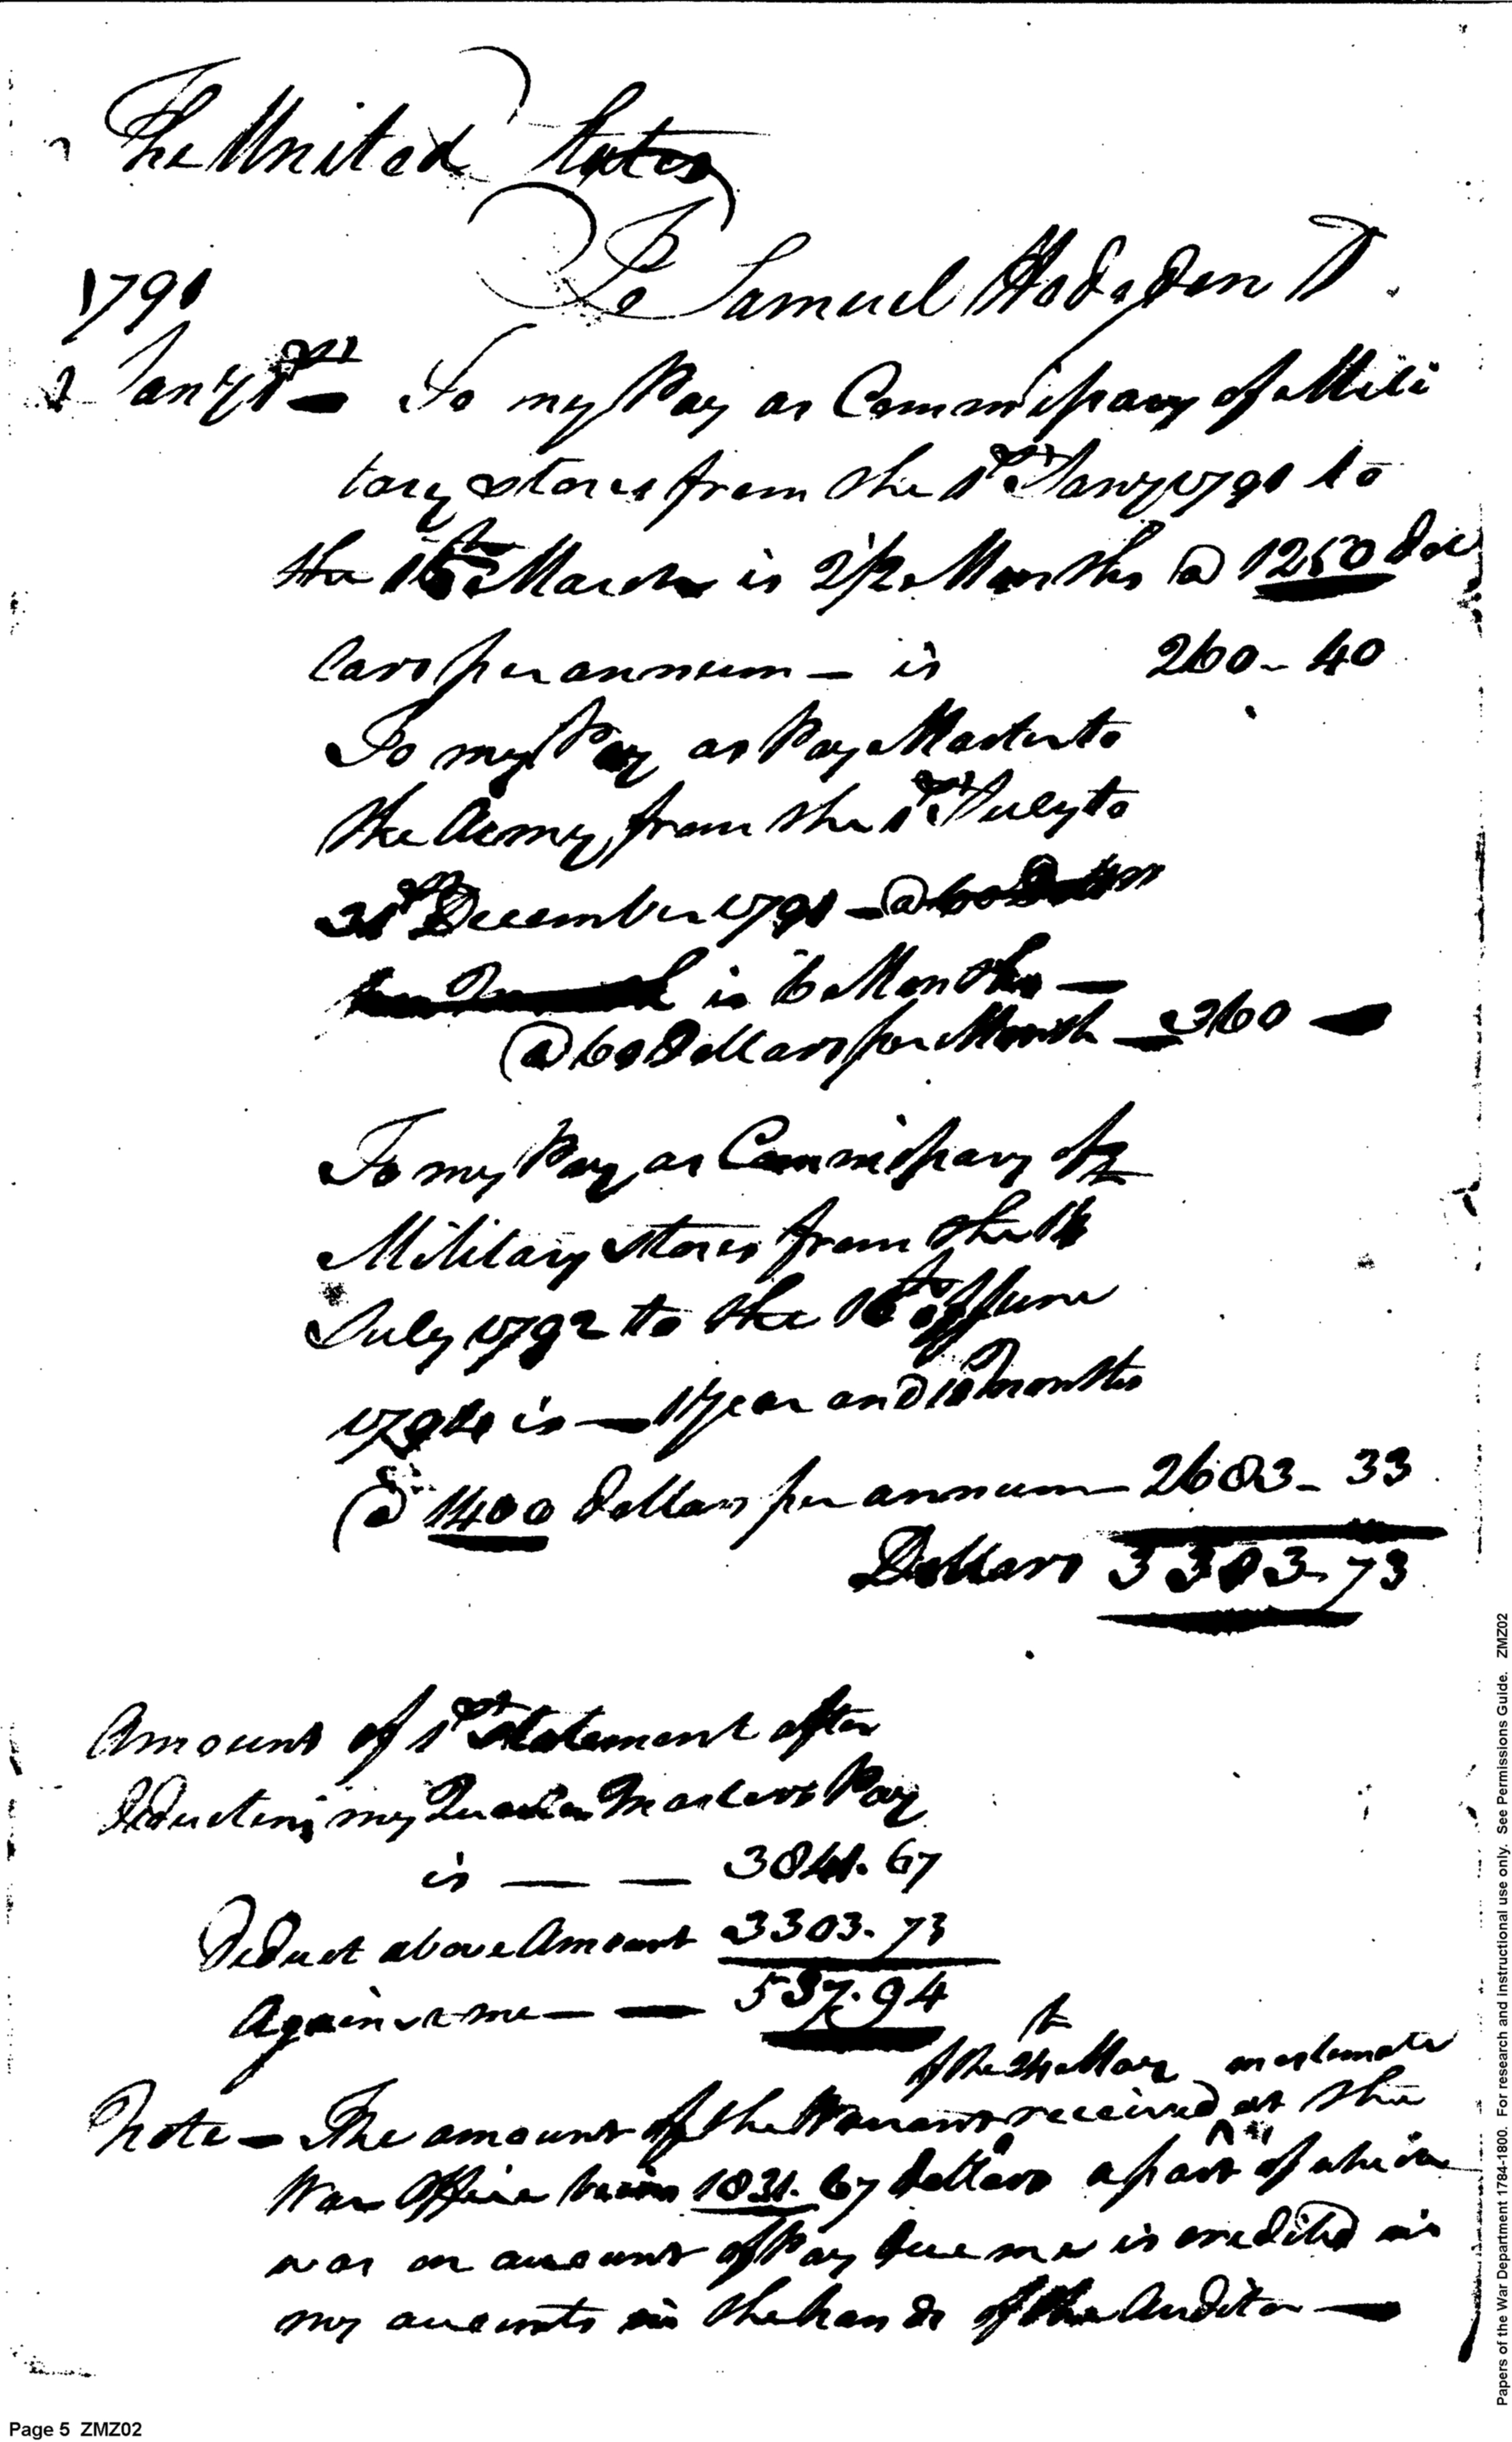 The United States
To Samuel Hodgdon Dr.
1791
Jany 1st — To my Pay as Commissary of Mili
tary Stores from the 1st Jany 1791 to
the 16th March is 2 1/2 Months @ 1250 dol
lars per annum — is 260 - 40
To my Pay as Pay Master to
the Army from the 1st July to
31st December 1791 — @ 60 Dollars
is 6 Months —
@ 60 Dollars per Month — 360 —
To my Pay as Commissary of
Military Stores from the
July 1792 to the 16th of June
1794 is — 1 Year and 10 months
@ 1400 dollars per annum — 2683 - 33
Dollars 3303 - 73
Amount of 1st Statement after
deducting my Quarter Masters Pay
is — — 3841. 67
Deduct above Amount 3303. 73
Against me — — 537. 94
of the 24th May on estimate
Note — The amount of the Warrant received at the
War Office being 1831. 67 dollars a part of which
was on account of Pay due me is credited in
my accounts in the hands of the Auditor —
Page 5 ZMZ02
Papers of the War Department 1784-1800. For research and instructional use only. See Permissions Guide. ZMZ02